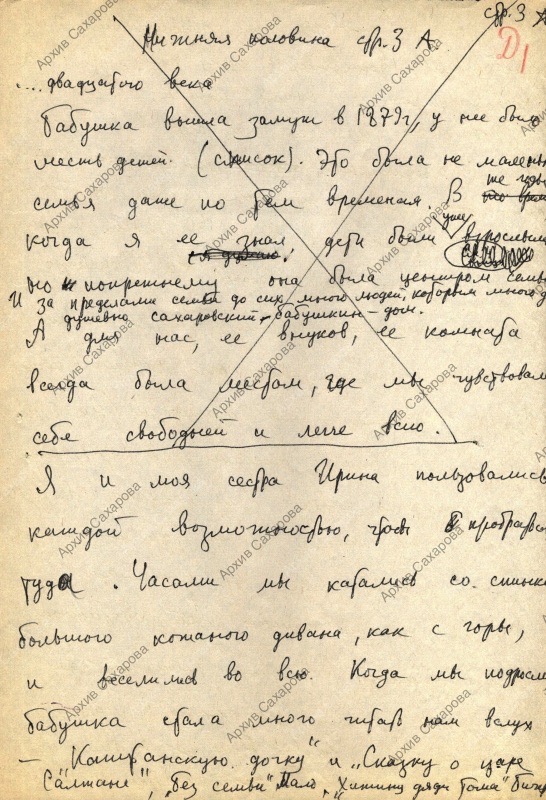 стр. 3 А
D1
Нижняя половина стр. 3 А
...двадцатого века
Бабушка вышла замуж в 1879г, у нее было
шесть детей. (список). Это была не малень
семья даже по тем временам. В те годы
когда я ее знал, дети были уже взрослыми
но попрежнему она была центром семьи
И за пределами семьи до сих много людей, которым много д
душевно сахаровский - бабушкин - дом.
А для нас, ее внуков, ее комната
всегда была местом, где мы чувствовали
себе свободней и легче всю.
Я и моя сестра Ирина пользовались
каждой возможностью, чтобы пробраться
туда. Часами мы катались со спинки
большого кожаного дивана, как с горы,
и веселились во всю. Когда мы подросли
бабушка стала много читать нам вслух
- "Капитанскую дочку" и "Сказку о царе
Салтане", "Без семьи" Мало, "Хижину дяди Тома" Бичер
Архив Сахарова